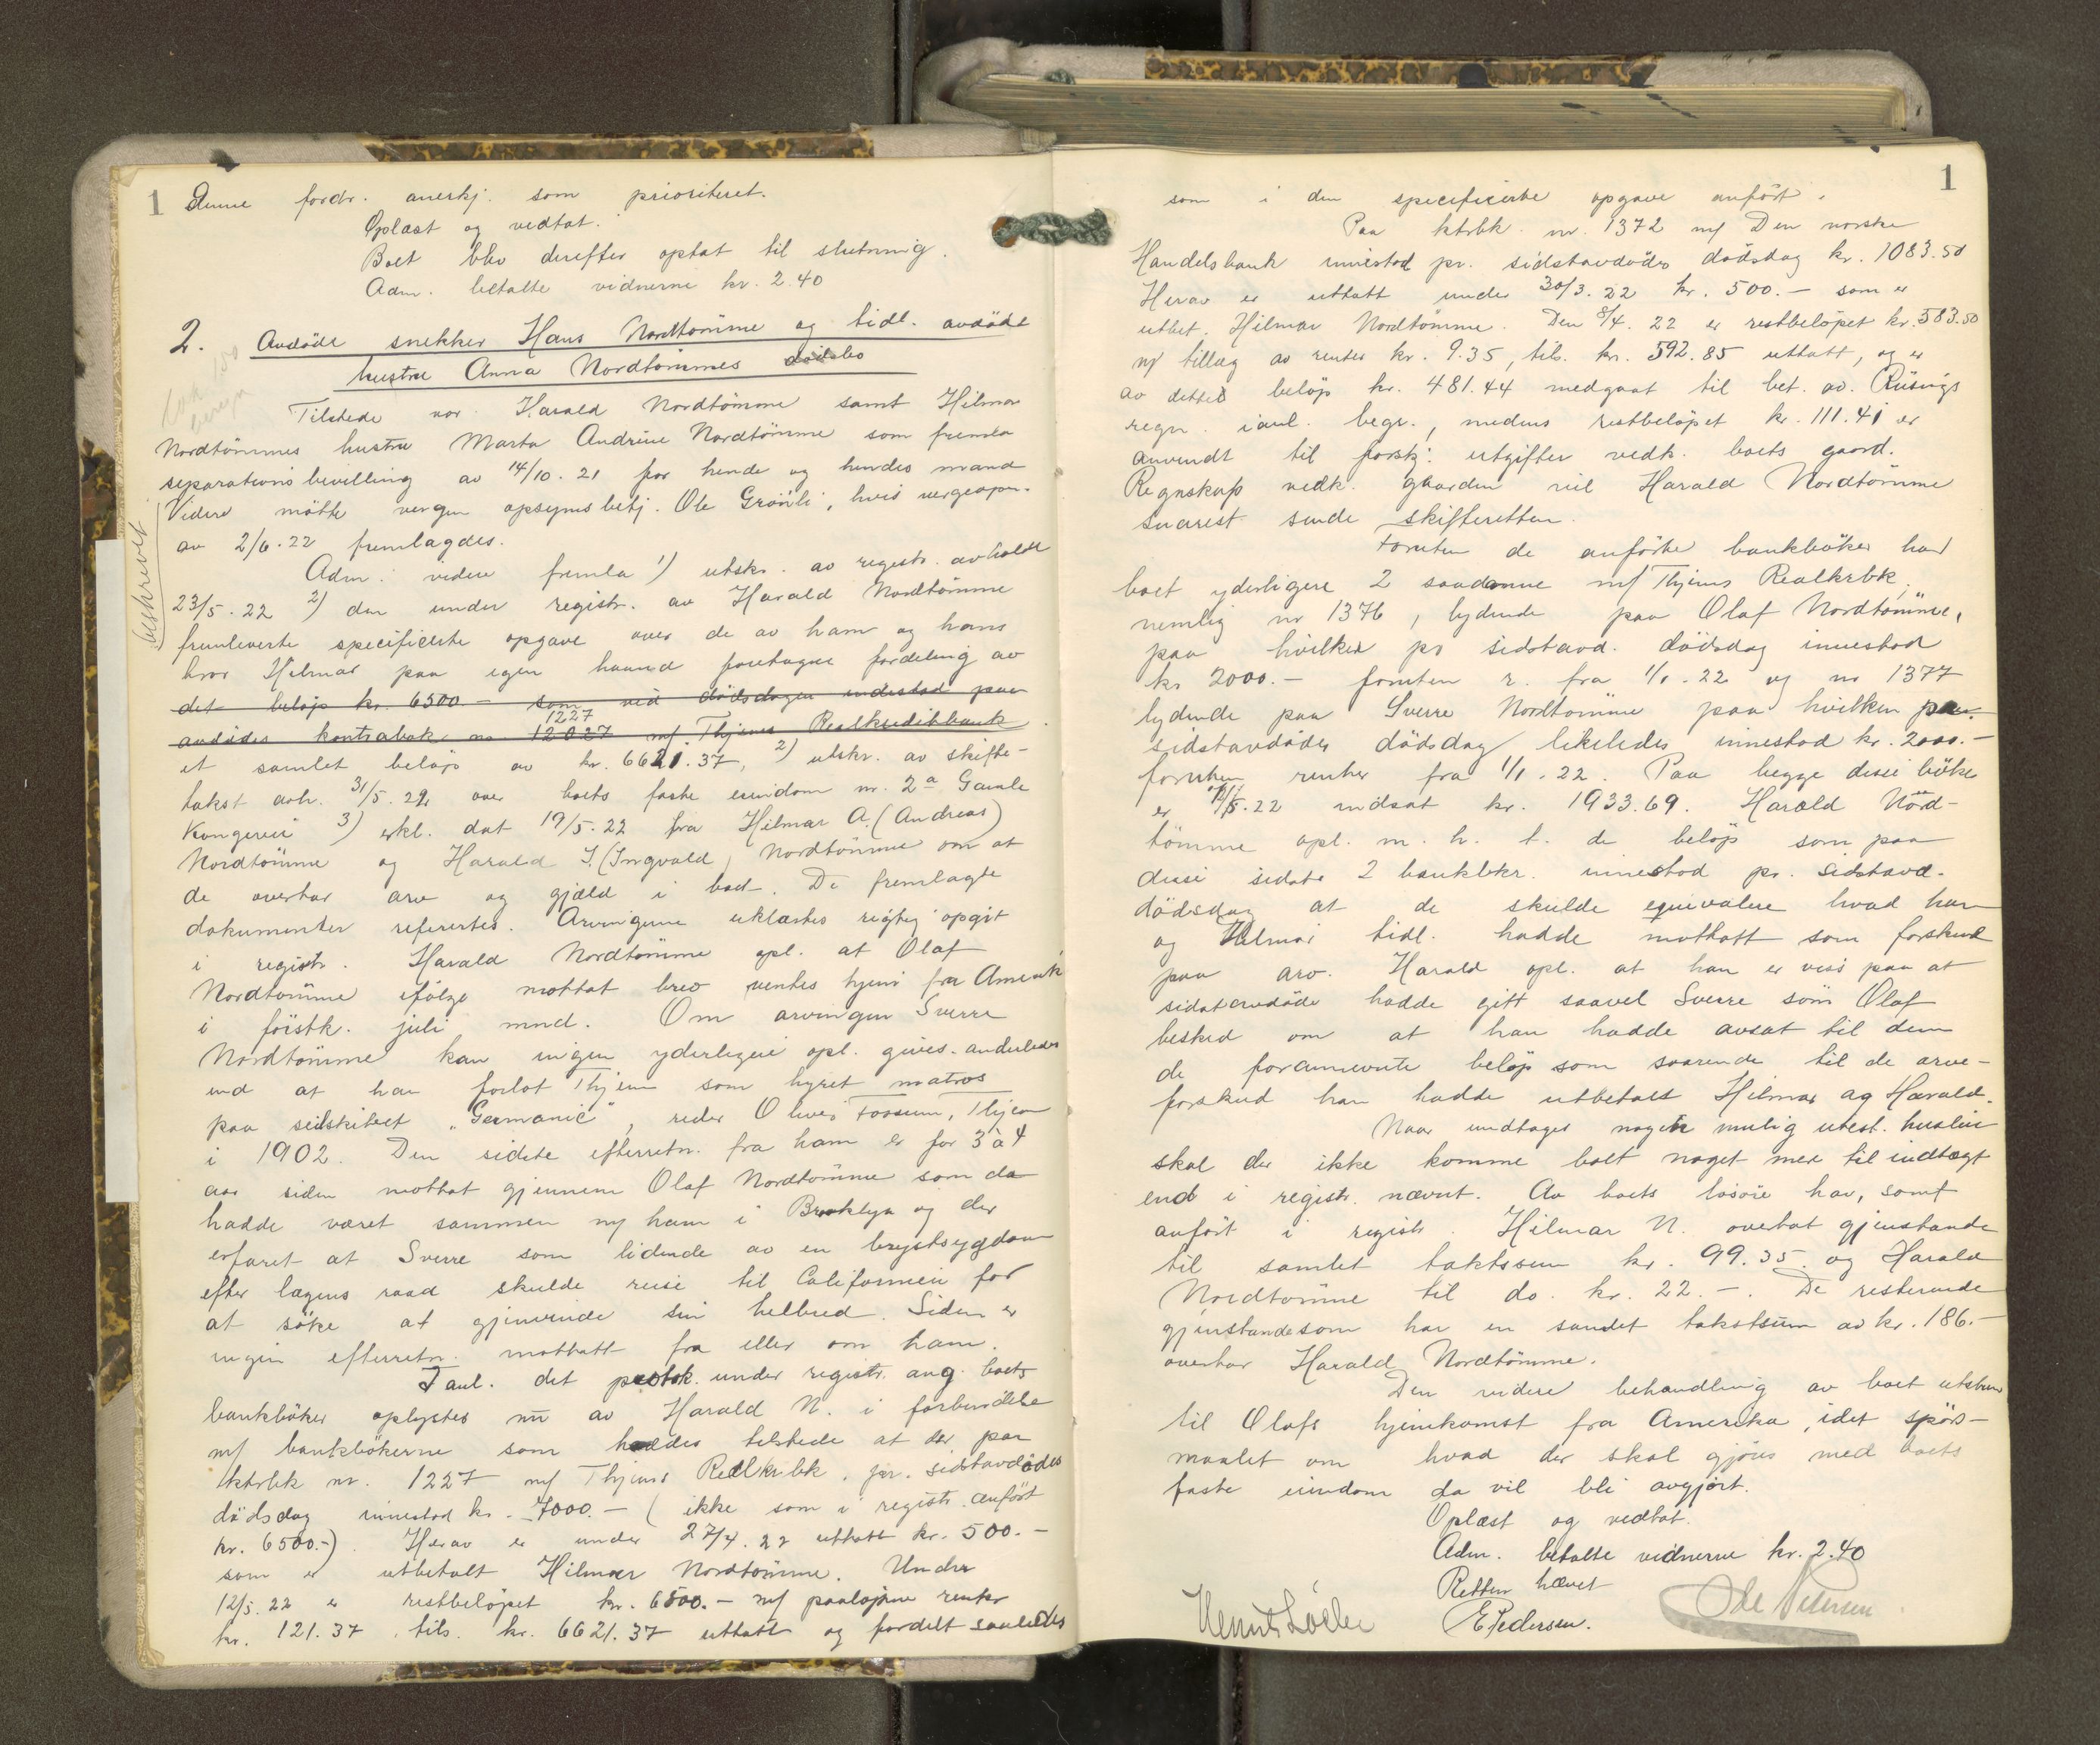 1
denne fordr. anerkj. som prioriteret.
Oplæst og vedtat.
Boet blev derefter optat til slutning.
Adm. betalte vidnerne kr. 2.40
2. Avdöde snekker Hans Nordtömme og tidl. avdöde
hustru Anna Nordtömmes dödsbo
Tilstede var Harald Nordtömme samt Hilmar
Nordtömmes hustru Marta Andrine Nordtömme som fremla
separationsbevilling av 14/10.21 for hende og hendes mand
Videre mötte vergen opsynsbetj. Ole Grönli, hvis vergeopn.
av 2/6.22 fremlagdes.
beskrevet
Adm. videre fremla 1) utskr. av registr. avholdt
23/5.22 2) den under registr. av Harald Nordtömme
fremleverte specificerte opgave over de av ham og hans
bror Hilmar paa egen haand foretagne fordeling av
det belöp kr. 6500.- som ved dödsdagen indestod paa
avdödes kontrabok no 12027 1227 m/ Thjems Realkreditbank
et samlet belöp av kr. 6621.37, 2) utskr. av skifte-
takst avh. 31/5.22 over boets faste eiendom nr. 2a Gamle
Kongevei 3) erkl. dat 19/5.22 fra Hilmar A. (Andreas)
Nordtömme og Harald I. (Ingvald) Nordtömme om at
de overtar arv og gjæld i boet. De fremlagte
dokumenter referertes. Arvingerne erklærtes rigtig opgit
i registr. Harald Nordtömme opl. at Olaf
Nordtömme ifölge mottat brev ventes hjem fra Amerika
i förstk. juli mnd. Om arvingen Sverre
Nordtömme kan ingen yderligere opl. gives anderledes
end at han forlot Thjem som hyret matros
paa seilskibet "Germanic", reder Oliver Fossum, Thjem
i 1902. Den sidste efterretn. fra ham er for 3 à 4
aar siden mottat gjennem Olaf Nordtömme som da
hadde været sammen m/ ham i Brooklyn og der
erfaret at Sverre som lidende av en brystsygdom
efter lægens raad skulde reise til Californien for
at söke at gjenvinde sin helbred. Siden er
ingen efterretn. mottatt fra eller om ham.
I anl. det protok. under registr. ang. boets
bankböker oplystes nu av Harald N. i forbindelse
m/ bankbökerne som haddes tilstede at der paa
ktrbk nr. 1227 m/ Thjems Realkrbk. pr. sidstavdödes
dödsdag innestod kr. 7000.- (ikke som i registr. anfört
kr. 6500.-). Herav er under 27/4.22 uttatt kr. 500.-
som er utbetalt Hilmar Nordtömme. Under
12/5.22 er restbelöpet kr. 6500.- m/ paalöpne renter
kr. 121.37 tils. kr. 6621.37 uttatt og fordelt saaledes
1
som i den specificerte opgave anfört.
Paa ktrbk. nr. 1372 m/ Den norske
Handelsbank innestod pr. sidstavdödes dödsdag kr. 1083.50
Herav er uttatt under 30/3.22 kr. 500.- som er
utbet. Hilmar Nordtömme. Den 8/4.22 er restbelöpet kr. 583.50
m/ tillæg av renter kr. 9.35, tils. kr. 592.85 uttatt, og er
av dettes belöp kr. 481.44 medgaat til bet. av Rüsings
regn. i anl. begr., medens restbelöpet kr. 111.41 er
anvendt til forskj. utgifter vedk. boets gaard.
Regnskap vedk. gaarden vil Harald Nordtömme
snarest sende skifteretten.
Foruten de anförte bankböker har
boet yderligere 2 saadanne m/ Thjems Realkrbk,
nemlig nr 1376, lydende paa Olaf Nordtömme,
paa hvilken pr sidstavd. dödsdag innestod
kr 2000.- foruten r. fra 1/1.22 og nr 1377
lydende paa Sverre Nordtömme paa hvilken paa
sidstavdödes dödsdag likeledes innestod kr. 2000.-
foruten renter fra 1/1.22. Paa begge disse böker
er 12/5.22 indsat kr. 1933.69. Harald Nord-
tömme opl. m. h. t. de belöp som paa
disse sidste 2 bankbkr. innestod pr. sidstavd.
dödsdag at de skulde equivalere hvad han
og Hilmar tidl. hadde mottatt som forskud
paa arv. Harald opl. at han er viss paa at
sidstavdöde hadde gitt saavel Sverre som Olaf
besked om at han hadde avsat til dem
de forannevnte belöp som svarende til de arve-
forskud han hadde utbetalt Hilmar og Harald.
Naar undtages nogen mulig utest. husleie
skal der ikke komme boet noget mer til indtægt
end i registr. nævnt. Av boets lösöre har, som
anfört i registr. Hilmar N. overtat gjenstande
til samlet takstsum kr. 99.35 og Harald
Nordtömme til do. kr. 22.-. De resterende
gjenstande som har en samlet takstsum av kr. 186.-
overtar Harald Nordtömme.
Den videre behandling av boet utstaar
til Olafs hjemkomst fra Amerika, idet spörs-
maalet om hvad der skal gjöres med boets
faste eiendom da vil bli avgjort.
Oplæst og vedtat.
Adm. betalte vidnerne kr. 2.40
Retten hævet
E Pedersen.
Ole Petersen